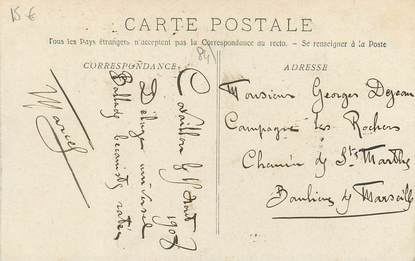 15 €
CARTE POSTALE
Tous les Pays étrangers n'acceptent pas la Correspondance au recto. — Se renseigner à la Poste
84
CORRESPONDANCE
ADRESSE
Cavaillon le 1908
Déluge universel
Ballade
Marcel
Monsieur Georges
Campagne les Rochers
Chemin de Ste Marthe
Banlieue de Marseille